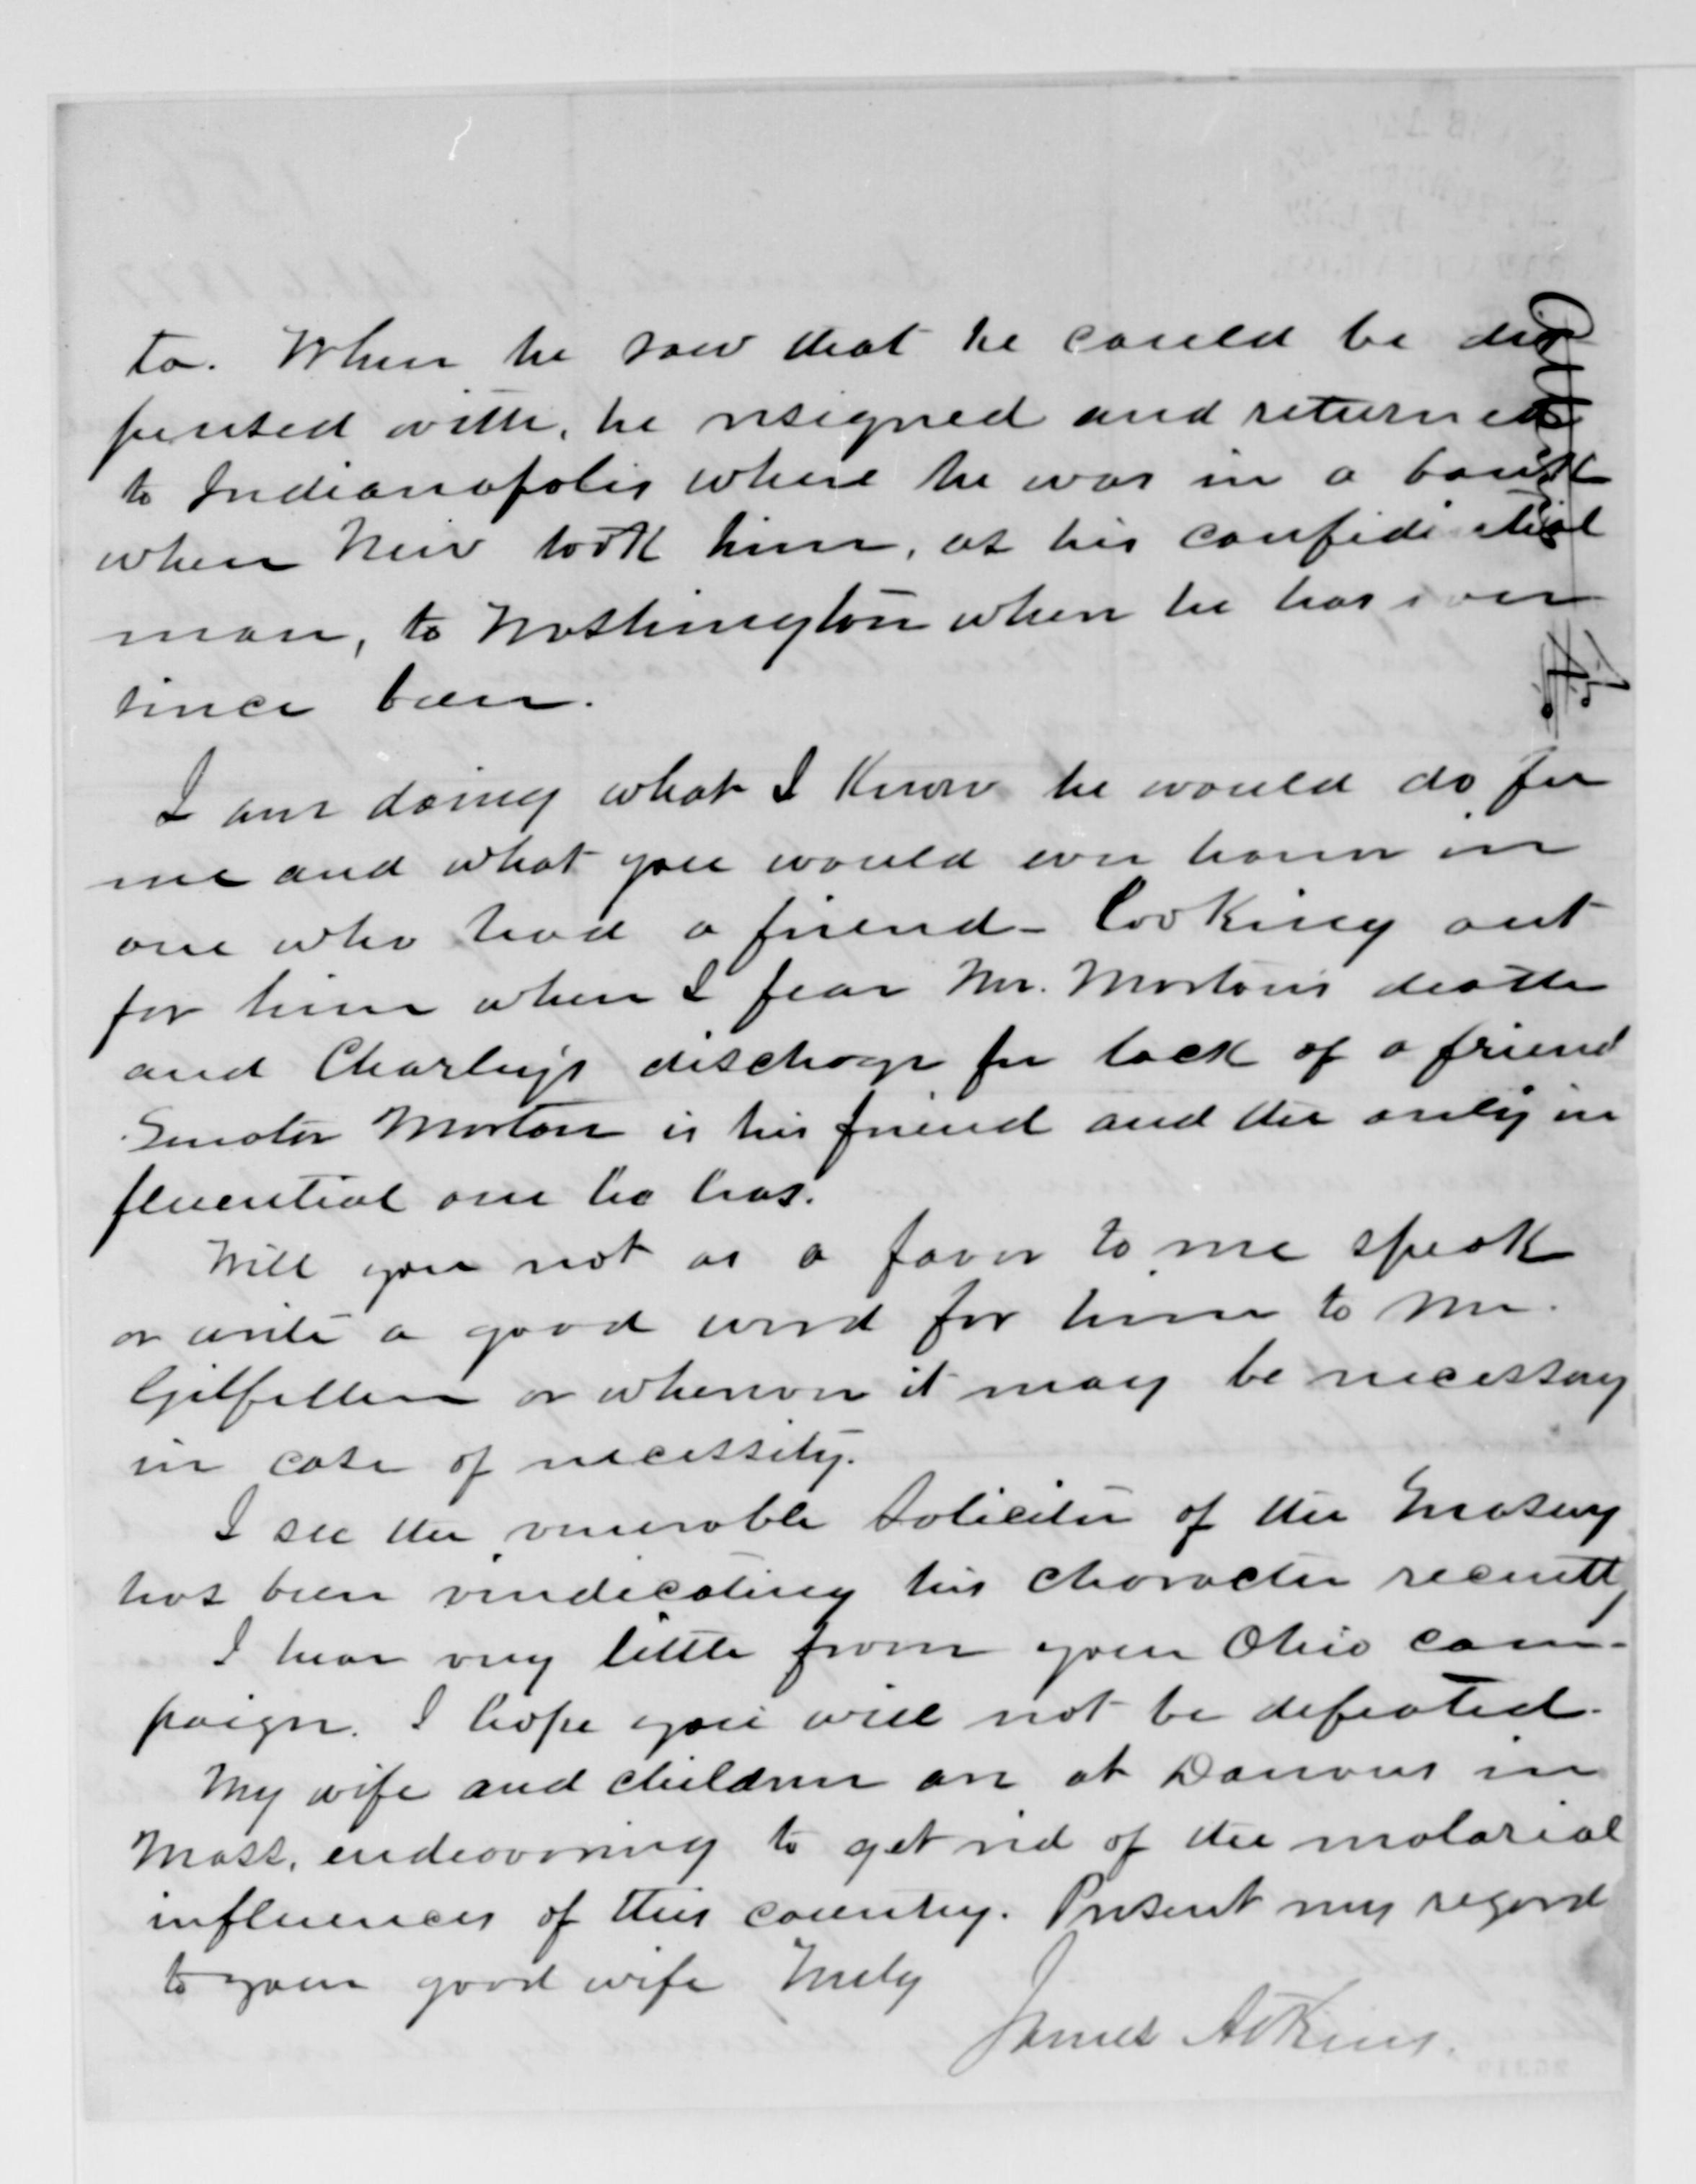 to. When he saw that he could be dis
pensed with, he resigned and returned
to Indianapolis where he was in a bank
when New took him, as his confidential
man, to Washington where he has ever
since been.
I am doing what I know he would do for
me and what you would ever honor in
one who had a friend - looking out
for him when I fear Mr. Morton's death
and Charley's discharge for lack of a friend
Senator Morton is his friend and the only in
fluential one he has.
Will you not as a favor to me speak
or write a good word for him to Mr.
Gilfillan or whenever it may be necessary
in case of necessity.
I see the venerable Solicitor of the Treasury
has been vindicating his character recently
I hear very little from your Ohio cam-
paign. I hope you will not be defeated.
My wife and children are at Danvers in
Mass. endeavoring to get rid of the malarial
influences of this country. Present my regard
to your good wife Truly
James Atkins.